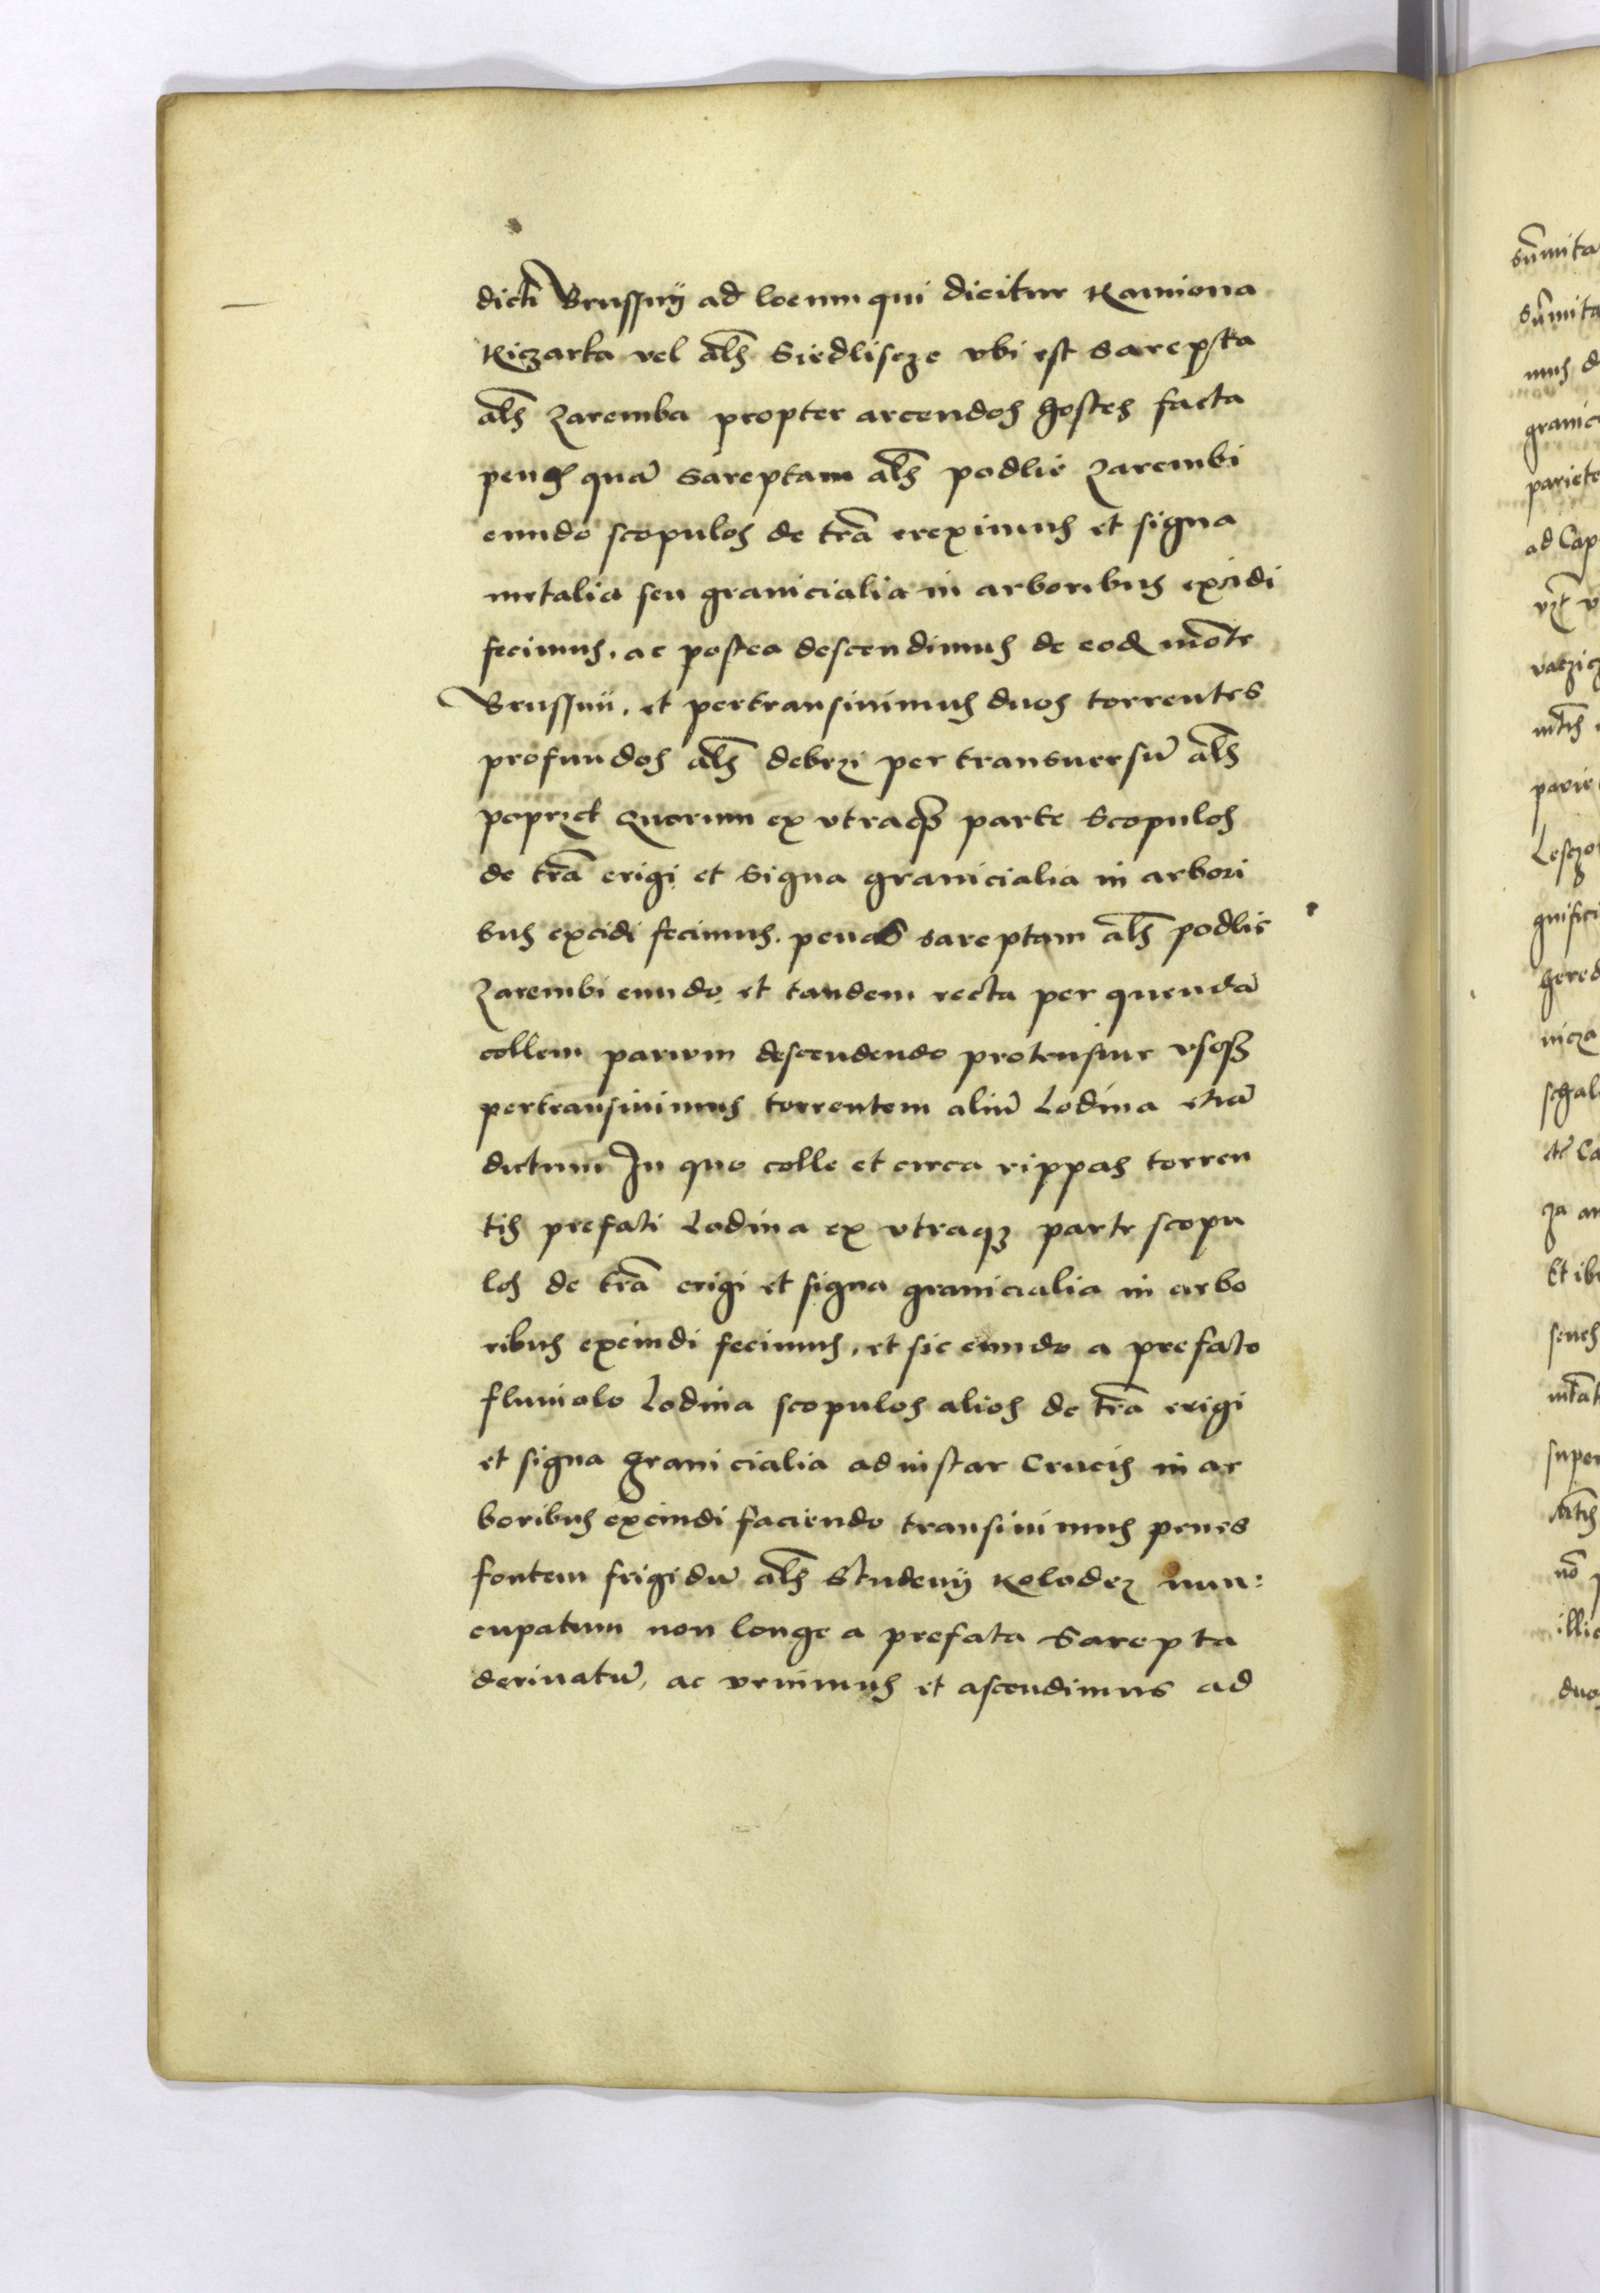 dicti Brussnÿ ad locum qui dicitur Kamiona
Kiczarka vel al̄s Siedliscze vbi est Sarepsta
al̄s Zaremba propter arcendos hostes facta
penes quā Sareptam al̄s podlie Zarembi
eundo scopulos de tr̄a ereximus et signa
metalia seu granicialia in arboribus excidi
fecimus, ac postea descendimus de eod mōte
Brussnii, et pertransiuimus duos torrentes
profundos al̄s debrzi per transuersū al̄s
poprzek Quorum ex vtraqȝ parte Scopulos
de tr̄a erigi et Signa granicialia in arbori
bus excidi fecimus. penes Sareptam al̄s podlie
Zarembi eundo et tandem recta per quendā
collem parum descendendo protensiue vsqȝ
pertransiuimus torrentem aliū Lodina etiā
dictum In quo colle et circa rippas torren
tis prefati Lodina ex vtraqȝ parte scopu
los de tr̄a erigi et signa granicialia in arbo
ribus excindi fecimus, et sic eundo a prefato
fluuiolo Lodina scopulos alios de tr̄a erigi
et signa granicialia ad instar Crucis in ar
boribus excindi faciendo transiuimus penes
fontem frigidū al̄s Studenÿ Kolodez nun:
cupatum non longe a prefata Sarepta
deriuatū, ac venimus et ascendimus ad